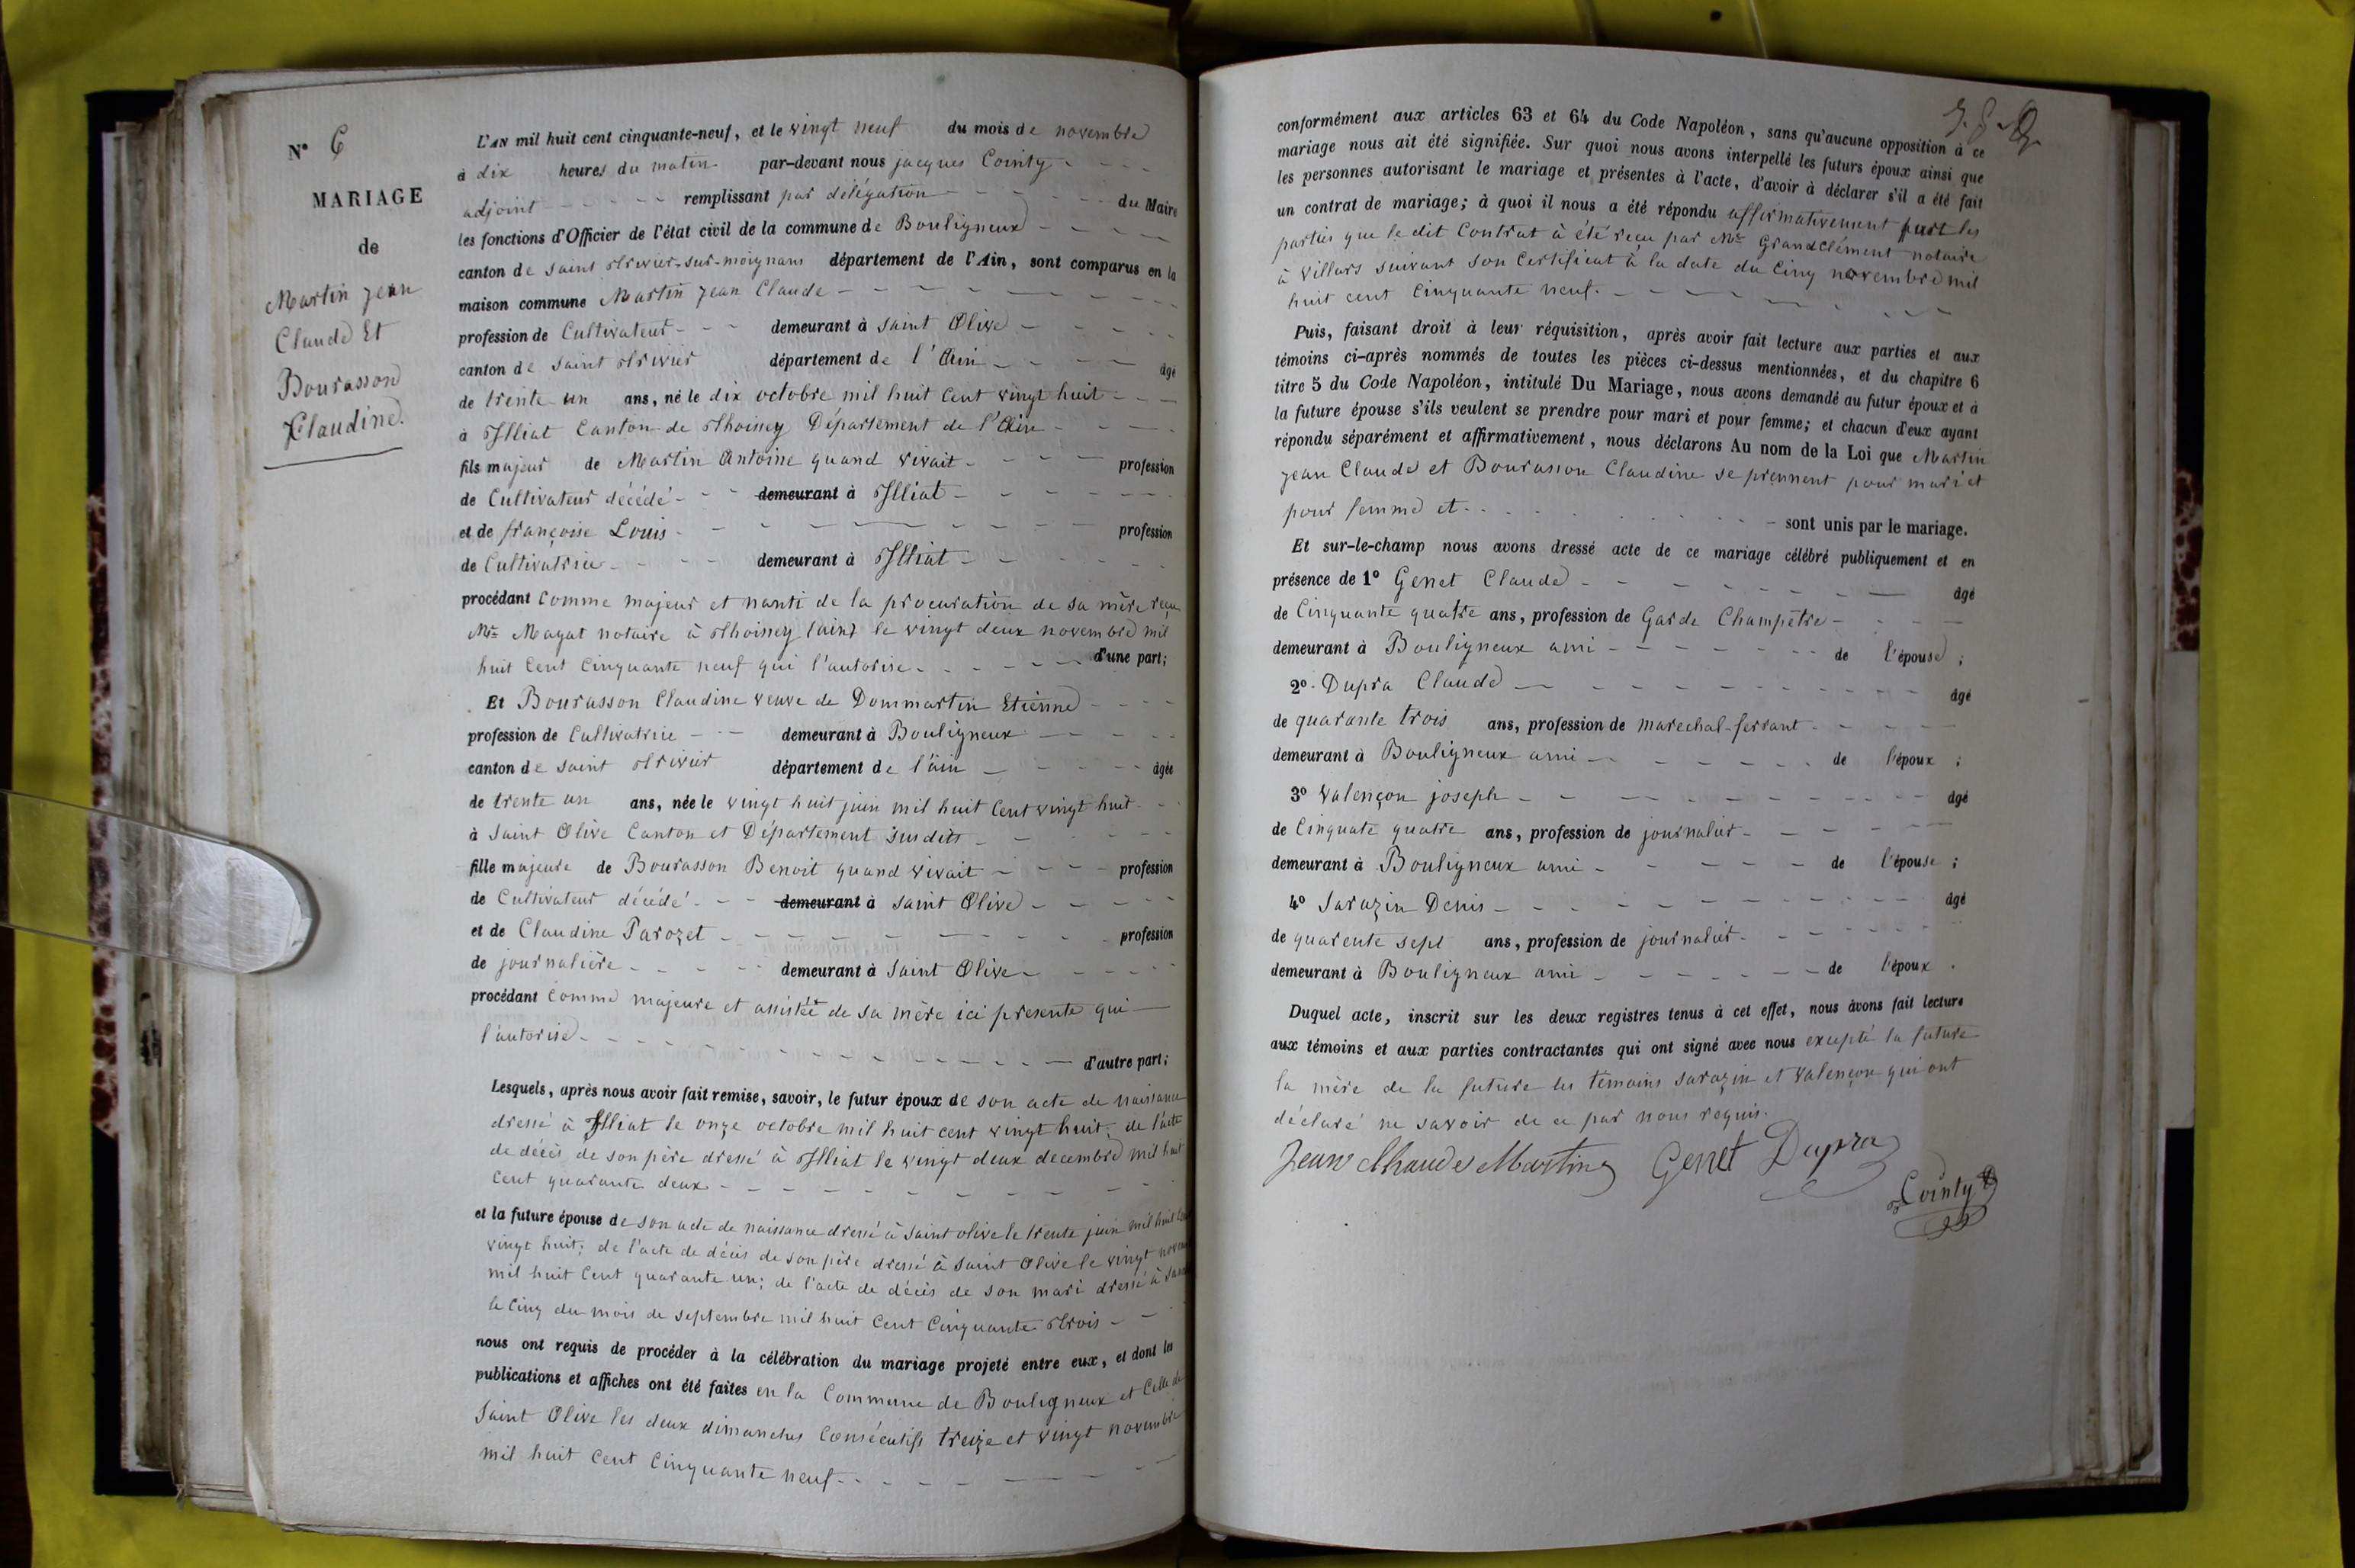 N° 6
MARIAGE
de
Martin jean
Claude Et
Bourasson
Claudine.
L'AN mil huit cent cinquante-neuf, et le vingt neuf du mois de novembre
à dix heures du matin par-devant nous jacques Cointy
adjoint remplissant par délégation du Maire
les fonctions d'Officier de l'état civil de la commune de Bouligneux
canton de saint trivier-sur-moignans département de l'Ain, sont comparus en la
maison commune Martin jean Claude
profession de Cultivateur demeurant à saint Olive
canton de saint trivier département de l'Ain âgé
de trente un ans, né le dix octobre mil huit cent vingt huit
à Illiat Canton de thoissey Département de l'Ain
fils majeur de Martin Antoine quand vivait profession
de Cultivateur décédé demeurant à Illiat
et de françoise Louis profession
de Cultivatrice demeurant à Illiat
procédant comme majeur et nanti de la procuration de sa mère reçu
Me Magat notaire à thoissey (ain) le vingt deux novembre mil
huit cent cinquante neuf qui l'autorise d'une part;
Et Bourasson Claudine veuve de Dommartin Etienne
profession de Cultivatrice demeurant à Bouligneux
canton de saint trivier département de l'ain âgée
de trente un ans, née le vingt huit juin mil huit cent vingt huit
à saint Olive Canton et Département susdits
fille majeure de Bourasson Benoit quand vivait profession
de Cultivateur décédé demeurant à saint Olive
et de Claudine Parozet profession
de journalière demeurant à saint Olive
procédant comme majeure et assistée de sa mère ici presente qui
l'autorise d'autre part;
Lesquels, après nous avoir fait remise, savoir, le futur époux de son acte de naissance
dressé à Illiat le onze octobre mil huit cent vingt huit; de l'acte
de décès de son père dressé à Illiat le vingt deux decembre mil huit
cent quarante deux
et la future épouse de son acte de naissance dressé à saint olive le trente juin mil huit cent
vingt huit; de l'acte de décès de son père dressé à saint Olive le vingt
mil huit cent quarante un; de l'acte de décès de son mari dressé à
le cinq du mois de septembre mil huit cent cinquante trois
nous ont requis de procéder à la célébration du mariage projeté entre eux, et dont les
publications et affiches ont été faites en la Commune de Bouligneux et celle de
saint Olive les deux dimanches consécutifs treize et vingt novembre
mil huit cent cinquante neuf
conformément aux articles 63 et 64 du Code Napoléon, sans qu'aucune opposition à ce
mariage nous ait été signifiée. Sur quoi nous avons interpellé les futurs époux ainsi que
les personnes autorisant le mariage et présentes à l'acte, d'avoir à déclarer s'il a été fait
un contrat de mariage; à quoi il nous a été répondu affirmativement par les
parties que le dit Contrat à été reçu par Me Grandclément notaire
à villars suivant son Certificat à la date du cinq novembre mil
huit cent cinquante neuf.
Puis, faisant droit à leur réquisition, après avoir fait lecture aux parties et aux
témoins ci-après nommés de toutes les pièces ci-dessus mentionnées, et du chapitre 6
titre 5 du Code Napoléon, intitulé Du Mariage, nous avons demandé au futur époux et à
la future épouse s'ils veulent se prendre pour mari et pour femme; et chacun d'eux ayant
répondu séparément et affirmativement, nous déclarons Au nom de la Loi que Martin
jean Claude et Bourasson Claudine se prennent pour mari et
pour femme et sont unis par le mariage.
Et sur-le-champ nous avons dressé acte de ce mariage célébré publiquement et en
présence de 1° Genet Claude âgé
de Cinquante quatre ans, profession de Garde Champêtre
demeurant à Bouligneux ami de l'épouse;
2° Dupra Claude âgé
de quarante trois ans, profession de marechal-ferrant
demeurant à Bouligneux ami de l'époux;
3° Valençon joseph âgé
de Cinquate quatre ans, profession de journalier
demeurant à Bouligneux ami de l'épouse;
4° Sarazin Denis âgé
de quarente sept ans, profession de journalier
demeurant à Bouligneux ami de l'époux.
Duquel acte, inscrit sur les deux registres tenus à cet effet, nous avons fait lecture
aux témoins et aux parties contractantes qui ont signé avec nous excepté la future
la mère de la future les témoins sarazin et valençon qui ont
déclaré ne savoir de ce par nous requis.
Jean Claude Martin Genet Dupra
Cointy